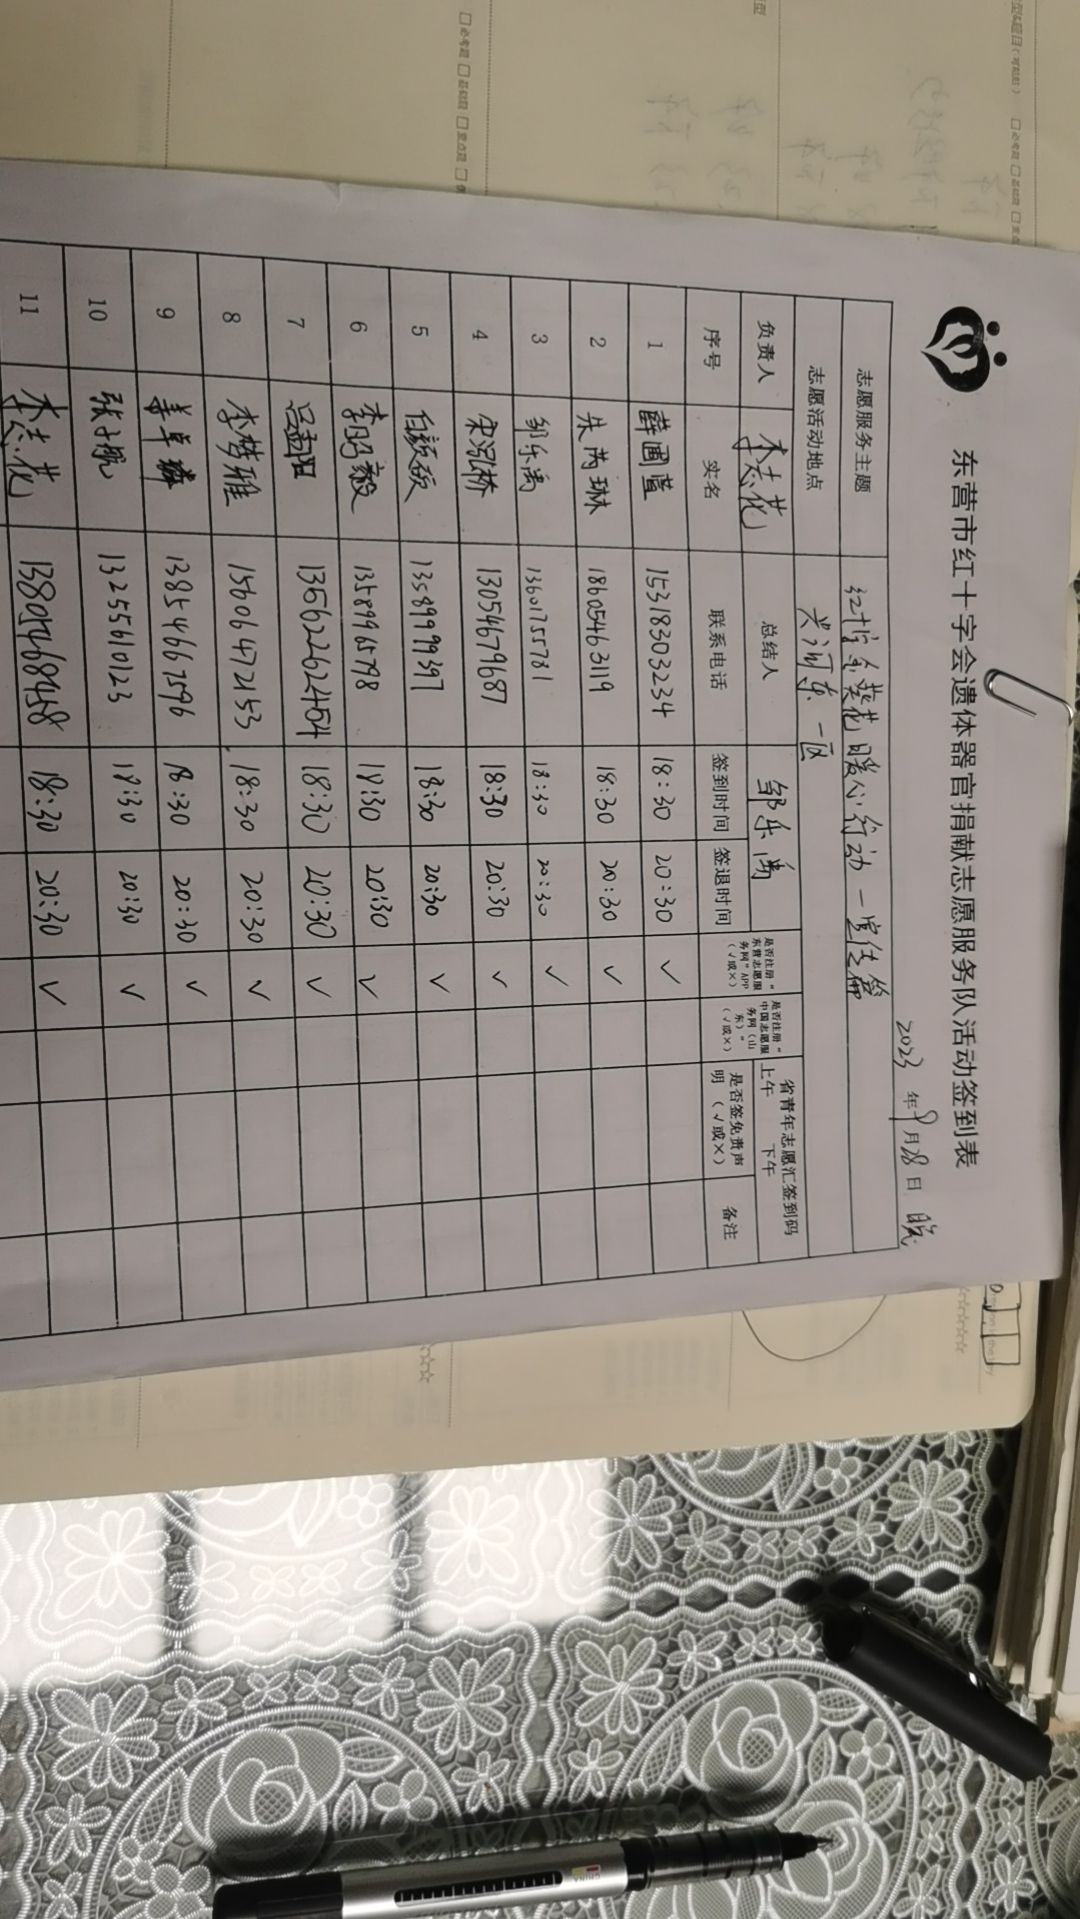 东营市红十字会遗体器官捐献志愿服务队活动签到表
2023 年 9 月 28 日 晚
志愿服务主题 红十字会葵花暖心行动一宣传篇
志愿活动地点 兴河东一区
负责人 李志花 总结人 邹乐禹 省青年志愿汇签到码 上午 下午
序号 实名 联系电话 签到时间 签退时间 是否注册“东营志愿服务网”APP（√或×） 是否注册“中国志愿服务网（山东）”（√或×） 是否签免责声明（√或×） 备注
1 薛圃萱 15318303234 18:30 20:30 √
2 朱芮琳 18605463119 18:30 20:30 √
3 邹乐禹 13601975781 18:30 20:30 √
4 宋泓桥 13054679687 18:30 20:30 √
5 13589999397 18:30 20:30 √
6 李昭毅 13589965798 18:30 20:30 √
7 吕孟阳 13562262454 18:30 20:30 √
8 李梦雅 15606472153 18:30 20:30 √
9 姜卓麟 13854667596 18:30 20:30 √
10 张子航 13255610123 18:30 20:30 √
11 李志花 13805468458 18:30 20:30 √